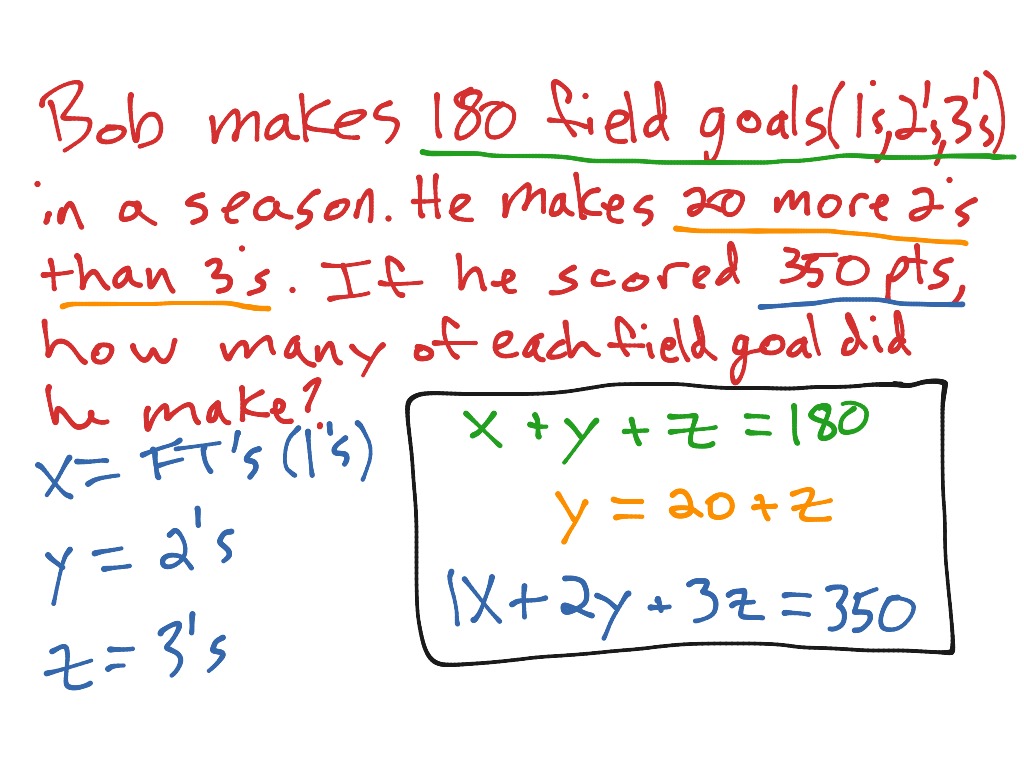 Bob makes 180 field goals(1's,2's,3's)
in a season. He makes 20 more 2's
than 3's. If he scored 350 pts,
how many of each field goal did
he make?
x = FT's (1's)
y = 2's
z = 3's
x + y + z = 180
y = 20 + z
1x + 2y + 3z = 350